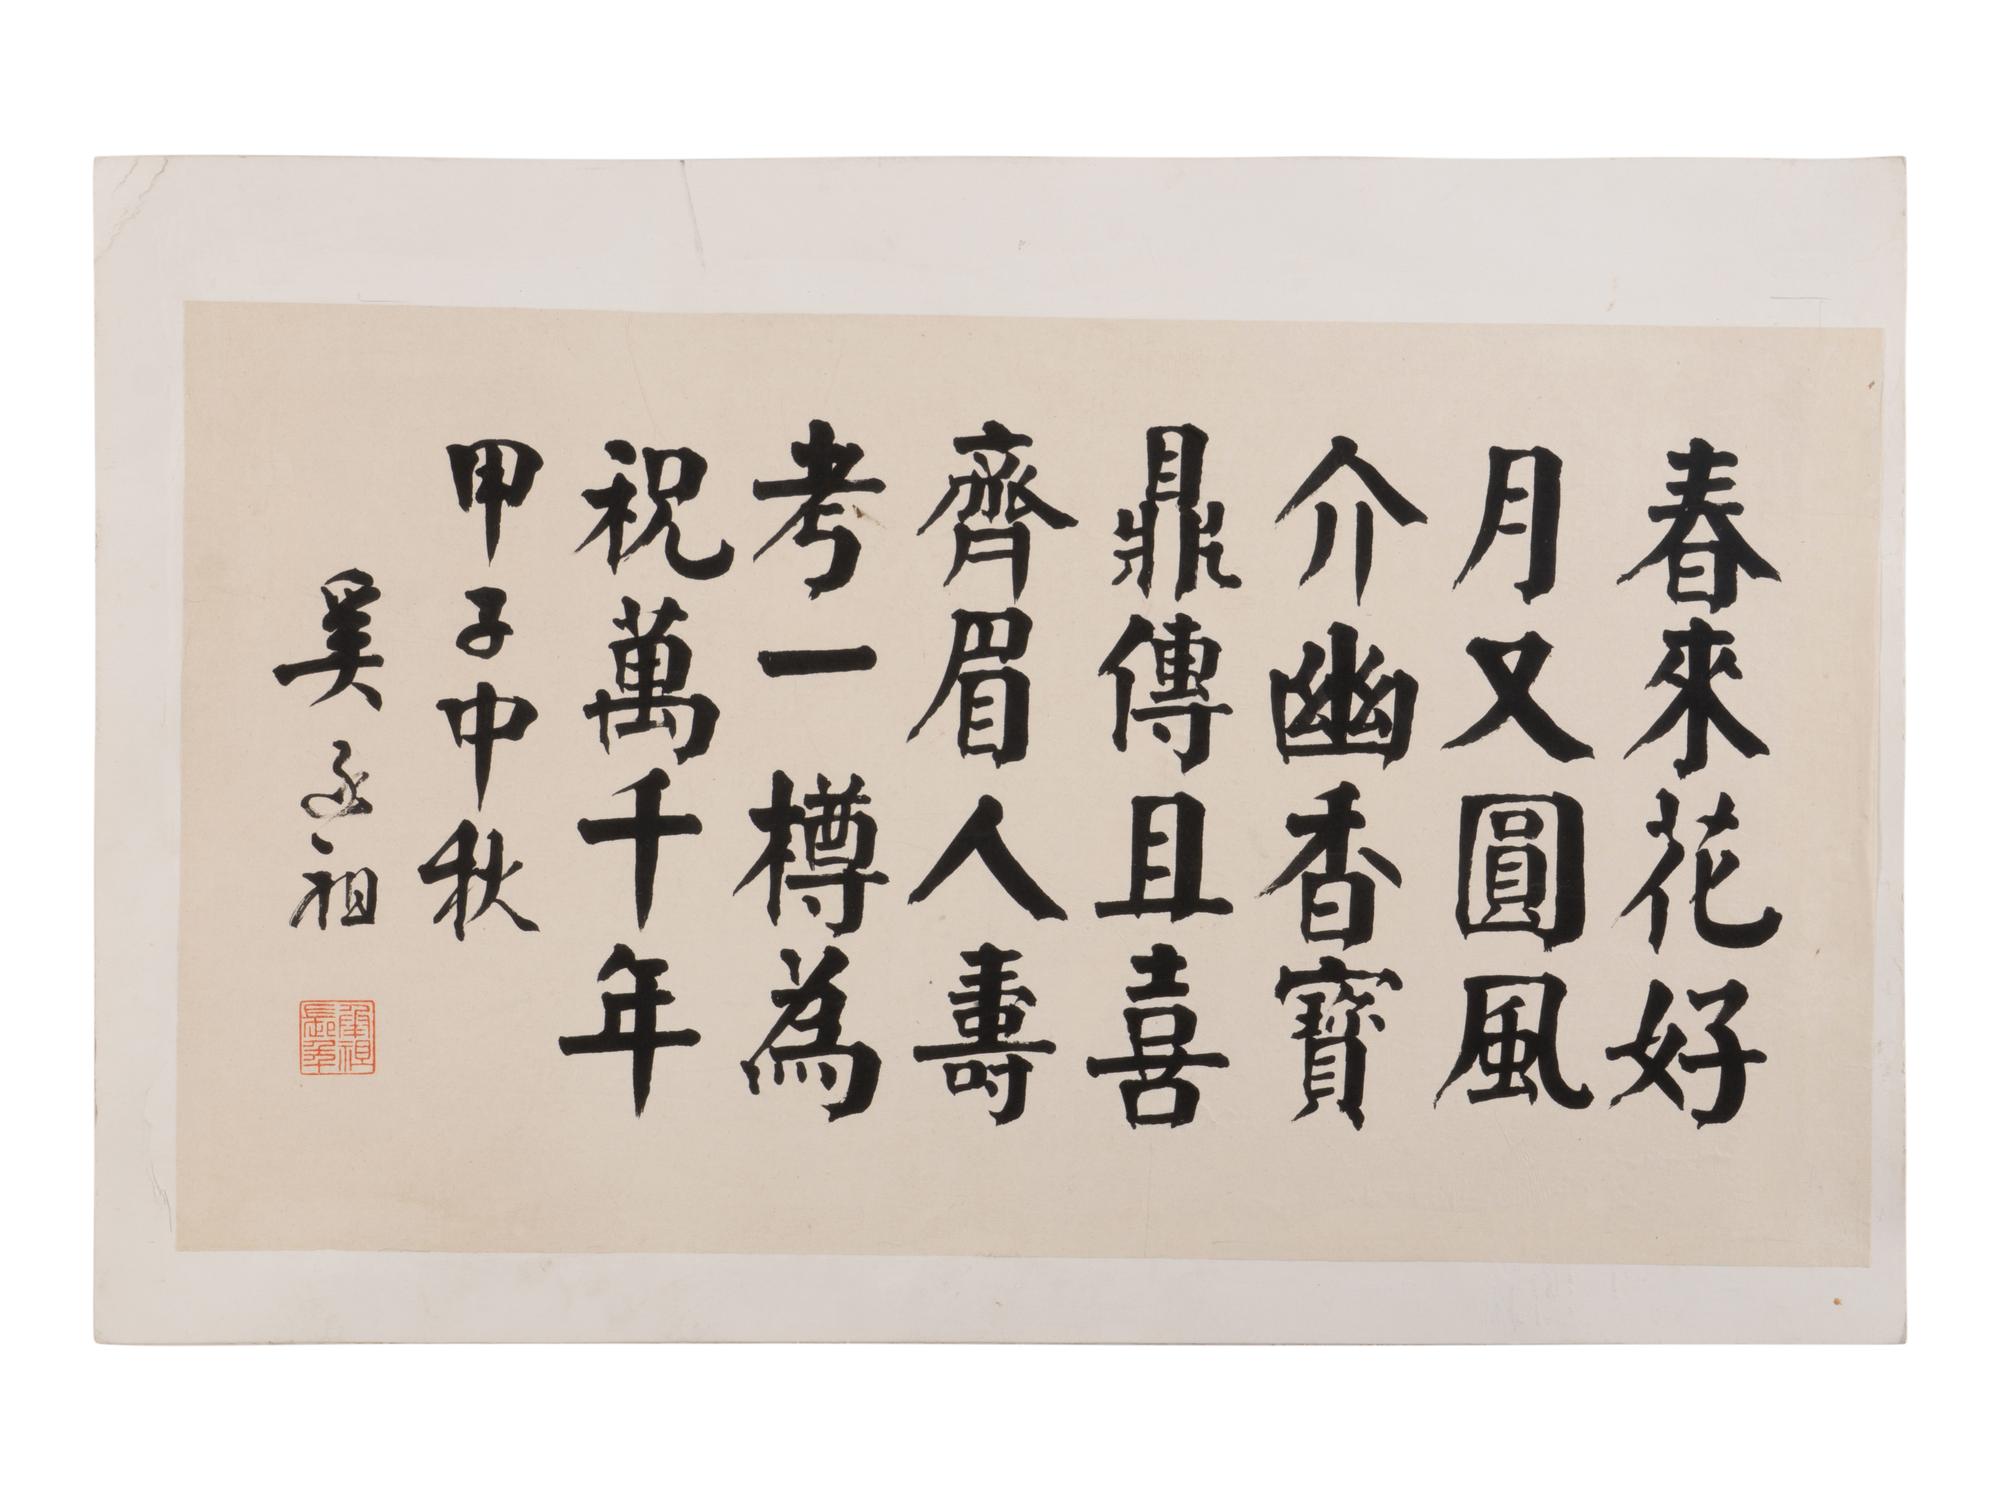 春來花好
月又圓風
介幽香寶
鼎傳且喜
齊眉人壽
考一樽為
祝萬千年
甲子中秋
奚丞祖